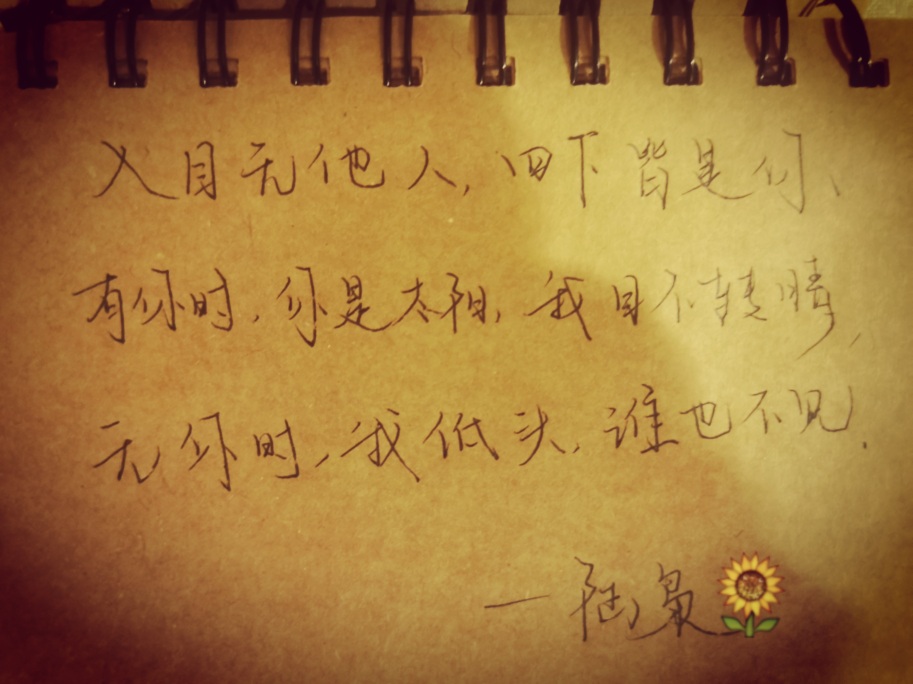 入目无他人，四下皆是你、
有你时，你是太阳，我目不转睛，
无你时，我低头，谁也不见．
一